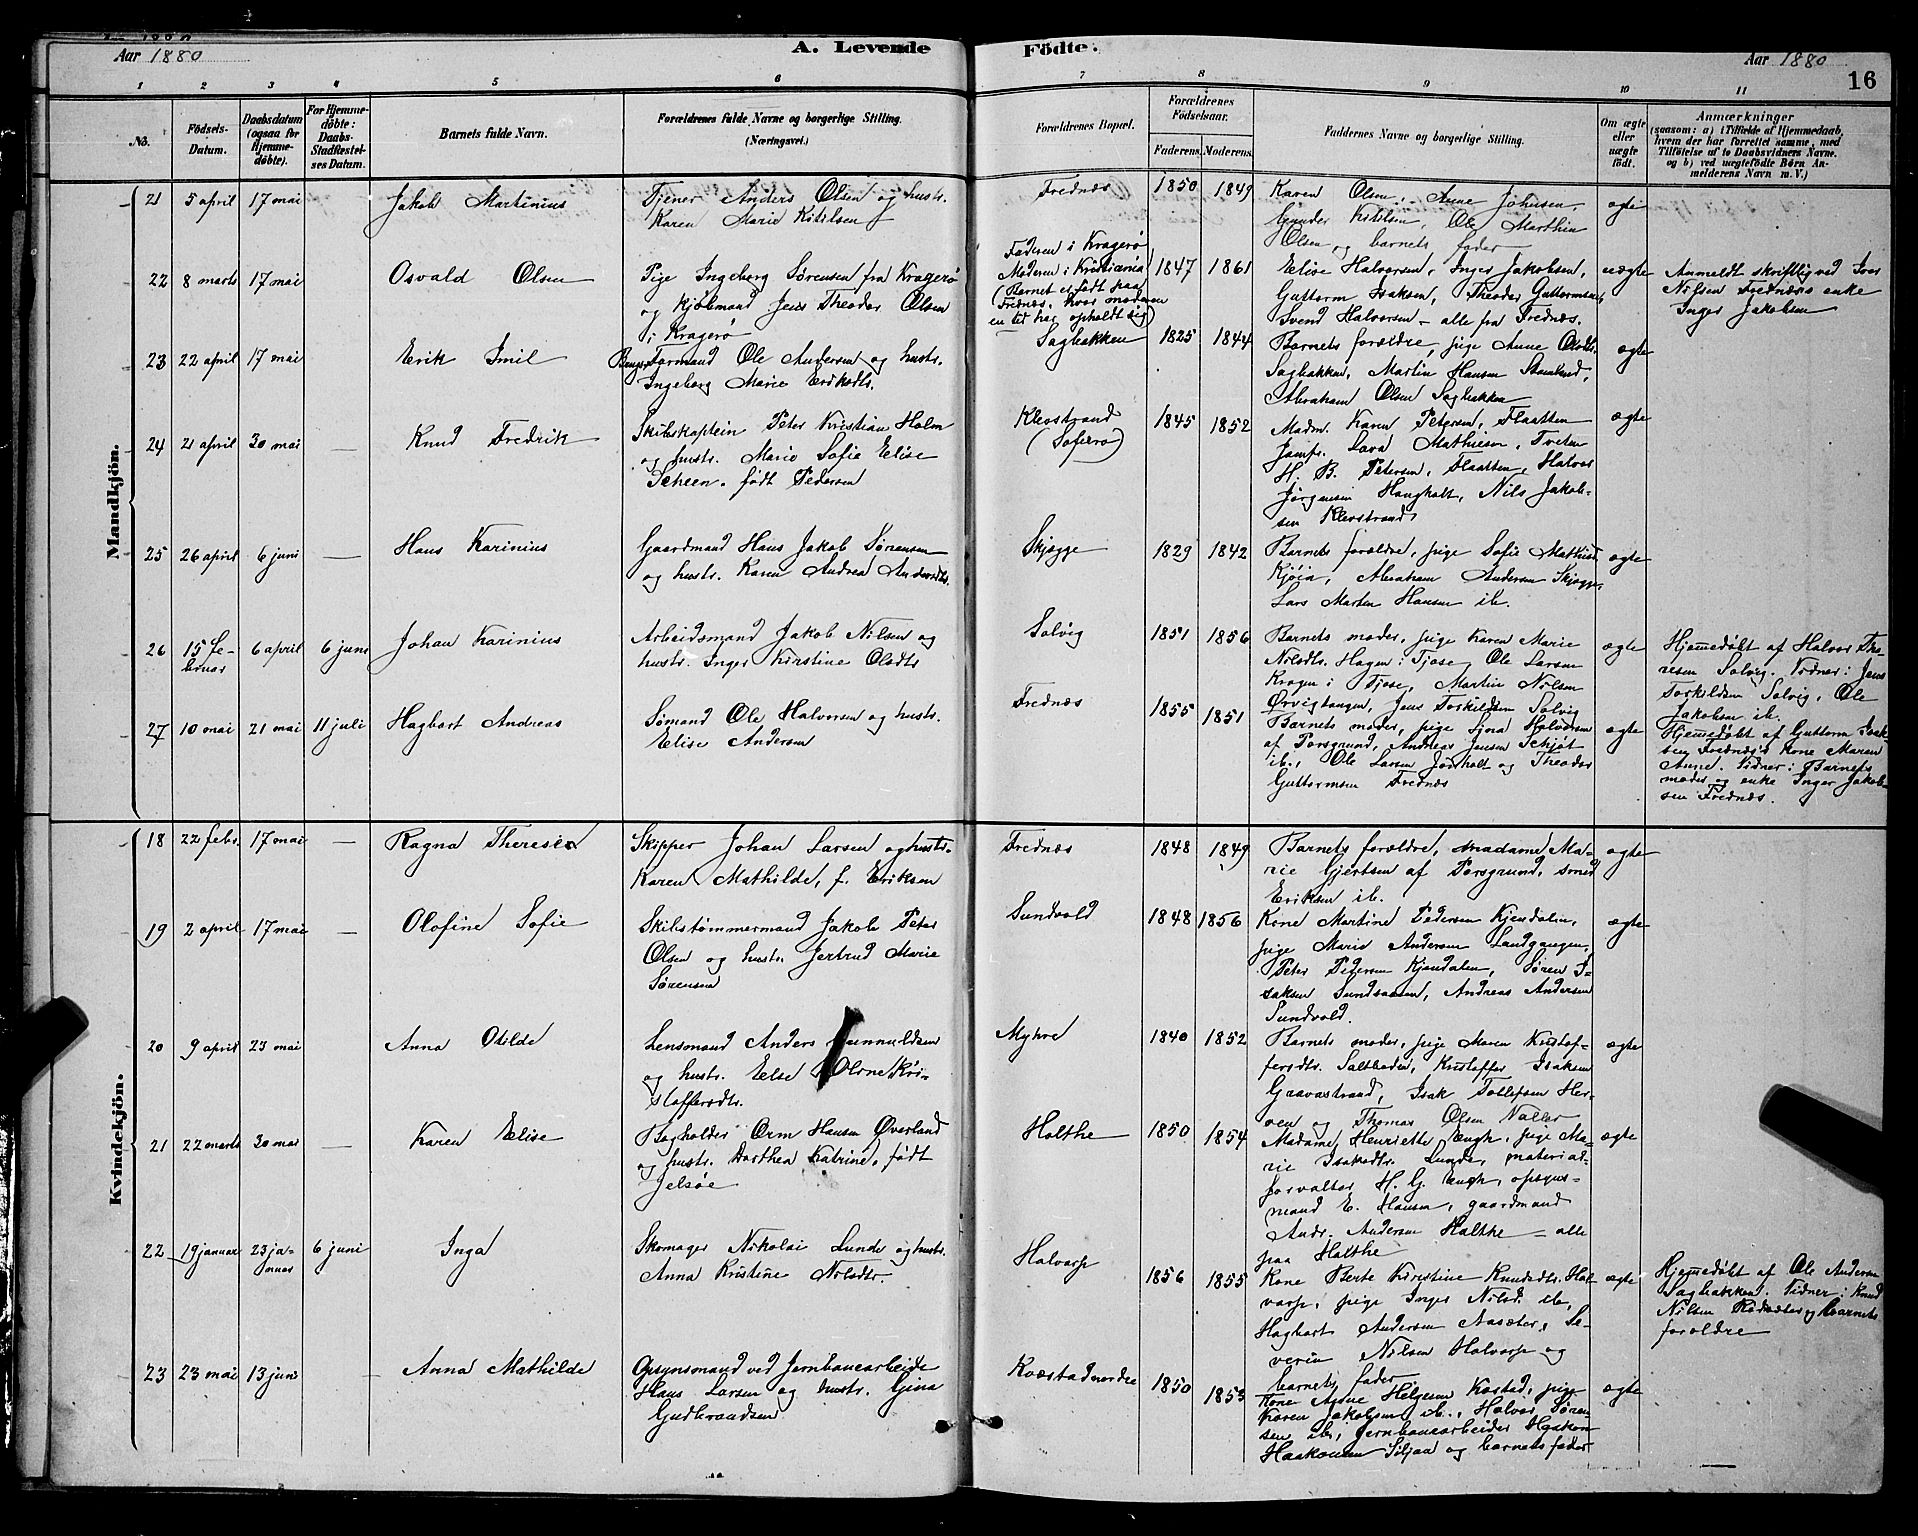 Aar 1880
A. Levende Födte.
Aar 1880
16
1 2 3 4 5 6 7 8 9 10 11
No.
Födsels-Datum.
Daabsdatum (ogsaa for Hjemme-döbte).
For Hjemme-döbte: Daabs-Stadfæstel-ses Datum.
Barnets fulde Navn.
Forældrenes fulde Navne og borgerlige Stilling.
(Næringsvei.)
Forældrenes Bopæl.
Forældrenes Födselsaar.
Faderens. Moderens.
Faddernes Navne og borgerlige Stilling.
Om ægte eller uægte födt.
Anmærkninger
(saasom: a) i Tilfælde af Hjemmedaab, hvem der har forrettet samme, med Tilföielse af to Daabsvidners Navne. og b) ved uægtefödte Börn An-melderens Navn m. V.)
Mandkjön.
21 5 april 17 mai Jakob Martinius
Tjener Anders Olsen og hustr.
Karen Marie Kitilsen
Frednæs 1850 1849
Karen Olsen, Anne Johnsen,
Gunder Kitilsen, Ole Marthin
Olsen og barnets fader
ægte
22 8 marts 17 mai Osvald Olsen
Pige Ingeborg Sørensen fra Kragerø
og Kjøbmand Jens Theodor Olsen
i Kragerø
Faderen i Kragerø
Moderen i Kristiania
(Barnet er født paa
Frednæs, hvor moderen
en tid har opholdt sig)
1847 1861
Elise Halvorsen, Inger Jakobsen,
Guttorm Isaksen, Theodor Guttormsen,
Svend Halvorsen – alle fra Frednæs.
uægte
Anmeldt skriftlig ved Iver
Nilsen Frednæs's enke
Inger Jakobsen
23 22 april 17 mai Erik Emil
Ole Andersen og hustr.
Ingeborg Marie Eriksdtr.
Sagbakken 1825 1844
Barnets forældre, pige Anne Olsdtr.
Sagbakken, Martin Hansen
Abraham Olsen Sagbakken
ægte
24 21 april 30 mai — Knud Fredrik
Skibskaptein Peter Kristian Holm
og hustr. Marie Sofie Elise
Scheen, født Pedersen
Klevstrand
(Sofiero)
1845 1852
Madm. Karen Petersen, Flaatten
Jomfr. Lava Mathiesen, Tveten
H. B. Petersen, Flaatten, Halvor
Jørgensen Haugholt, Nils Jakob-
sen Klevstrand
ægte
25 26 april 6 juni — Hans Karinius
Gaardmand Hans Jakob Sørensen
og hustr. Karen Andrea Andersdtr.
Skjøgge 1829 1842
Barnets forældre, pige Sofie Mathisd.
Kjøia, Abraham Andersen Skjøgge,
Lars Marten Hansen ib.
ægte
26 15 fe-
bruar 6 april 6 juni Johan Karinius
Arbeidsmand Jakob Nilsen og
hustr. Inger Kirstine Olsdtr.
Solvig 1851 1856
Barnets moder, pige Karen Marie
Nilsdtr. Hagen i Tjose, Ole Larsen
Kragen i Tjose, Martin Nilsen
Ørvigtangen, Jens Torkildsen Solvig
ægte
Hjemmedøbt af Halvor Tho-
resen Solvig. Vidner: Jens
Torkildsen Solvig, Ole
Jakobsen ib.
27 10 mai 21 mai 11 juli Hagbart Andreas
Sømand Ole Halvorsen og hustr.
Elise Andersen
Frednæs 1855 1851
Barnets moder, pige Lina Halvorsen
af Porsgrund, Andreas Jensen Schjøt
ib., Ole Larsen Jønholt og Theodor
Guttormsen Frednæs
ægte
Hjemmedøbt af Guttorm Isak-
sen Frednæs's kone Maren
Anne. Vidner: Barnets
moder og enke Inger Jakob-
sen Frednæs.
Kvindekjön.
18 22 febr. 17 mai — Ragna Theresea
Skipper Johan Larsen og hustr.
Karen Mathilde, f. Eriksen
Frednæs 1848 1849
Barnets forældre, madame Ma-
rie Gjertsen af Porsgrund, smed
Eriksen ib.
ægte
19 2 april 17 mai — Olofine Sofie
Skibstømmermand Jakob Peter
Olsen og hustr. Jertrud Marie
Sørensen
Sundvold 1848 1856
Kone Martine Pedersen Kjendalen,
pige Marie Andersen Landgangen,
Peter Pedersen Kjendalen, Søren I-
saksen Sundsaasen, Andreas Andersen
Sundvold.
ægte
20 9 april 23 mai Anna Otilde
Lensmand Anders Gunnuldsen
og hustr. Else Oline Kri-
stoffersdtr.
Myhre 1840 1852
Barnets moder, pige Maren Kristof-
fersdtr. Saltboden, Kristoffer Isaksen
Graavastrand, Isak Tollefsen Her-
øen og Thomas Olsen Valler
ægte
21 22 marts 30 mai — Karen Elise
Bogholder Orm Hansen Øverland
og hustr. Dorthea Katrine, født
Jelsøe
Holthe 1850 1854
Madame Henriette Engh, pige Ma-
rie Isaksdtr. Lunde, material-
forvalter H. G. Engh, opsyns-
mand E. Hansen, gaardmand
Andr. Andersen Holthe – alle
paa Holthe
ægte
22 19 januar 23 ja-
nuar 6 juni Inga
Skomager Nikolai Lunde og hustr.
Anna Kristine Nilsdtr.
Halvarp 1856 1855
Kone Berte Kirstine Knudsdtr. Hal-
varp, pige Inger Nilsd. ib.,
Hagbart Andersen Aasæter, Se-
verin Nilsen Halvarp og
barnets fader
ægte
Hjemmedøbt af Ole Andersen
Sagbakken. Vidner: Knud
Nilsen Rødsæter og barnets
forældre
23 23 mai 13 juni — Anna Mathilde
Opsynsmand ved Jernbanearbeide
Hans Larsen og hustr. Gina
Gudbrandsen
Kvæstadnordre 1850 1853
Kone Anne Helgesen Kvæstad, pige
Karen Jakobsen ib., Halvor Søren-
sen ib., Jernbanearbeider Haakon
Haakonsen Siljan og barnets fader
ægte